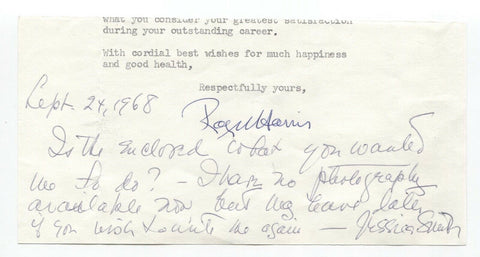 what you consider your greatest satisfaction
during your outstanding career.
With cordial best wishes for much happiness
and good health,
Respectfully yours,
Sept. 24, 1968
Is the enclosed what you wanted
me to do? — I have no photography
available now but may have later
if you wish to write me again —